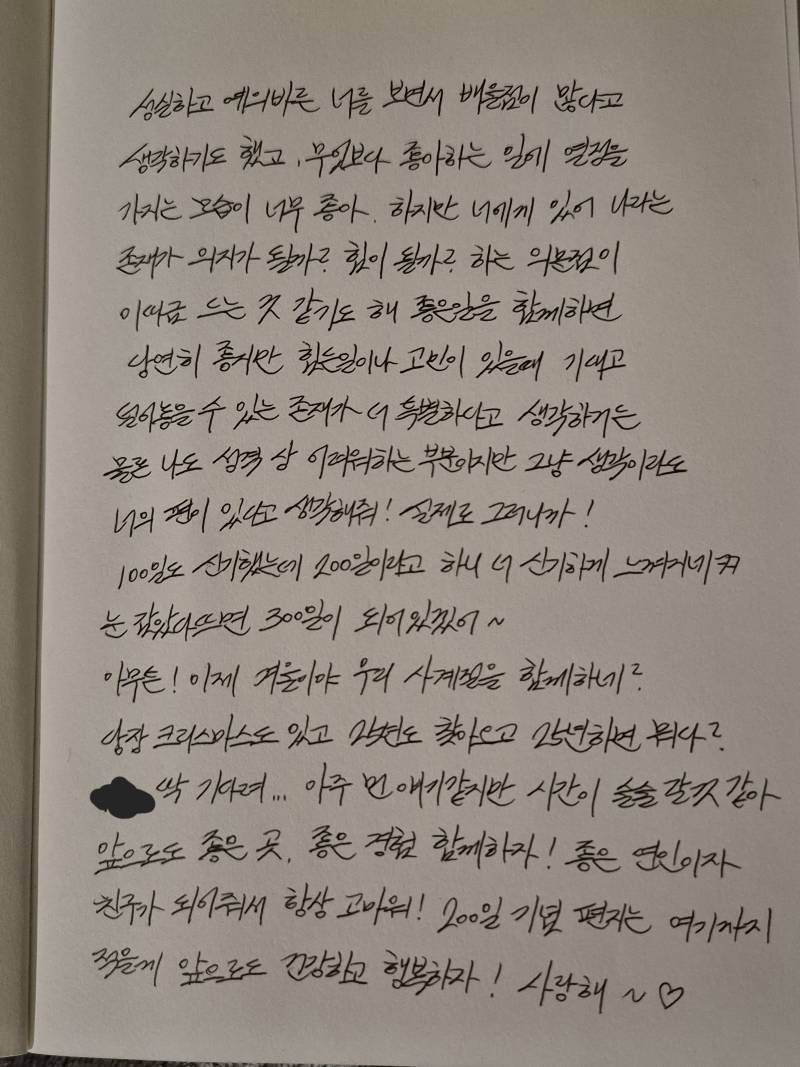 성실하고 예의바른 너를 보면서 배울점이 많다고
생각하기도 했고, 무엇보다 좋아하는 일에 열정을
가지는 모습이 너무 좋아. 하지만 너에게 있어 나라는
존재가 의지가 될까? 힘이 될까? 하는 의문점이
이따금 드는 것 같기도 해 좋은일을 함께하면
당연히 좋지만 힘든일이나 고민이 있을때 기대고
털어놓을 수 있는 존재가 더 특별하다고 생각하거든
물론 나도 성격 상 어려워하는 부분이지만 그냥 생각이라도
너의 편이 있다고 생각해줘! 실제로 그러니까!
100일도 신기했는데 200일이라고 하니 더 신기하게 느껴지네ㅋㅋ
눈 감았다뜨면 300일이 되어있겠어~
아무튼! 이제 겨울이야 우리 사계절을 함께하네?
당장 크리스마스도 있고 25년도 찾아오고 25년하면 뭐다?
딱 기다려... 아주 먼 얘기같지만 시간이 술술 갈것 같아
앞으로도 좋은 곳, 좋은 경험 함께하자! 좋은 연인이자
친구가 되어줘서 항상 고마워! 200일 기념 편지는 여기까지
적을게 앞으로도 건강하고 행복하자! 사랑해 ~ ♡